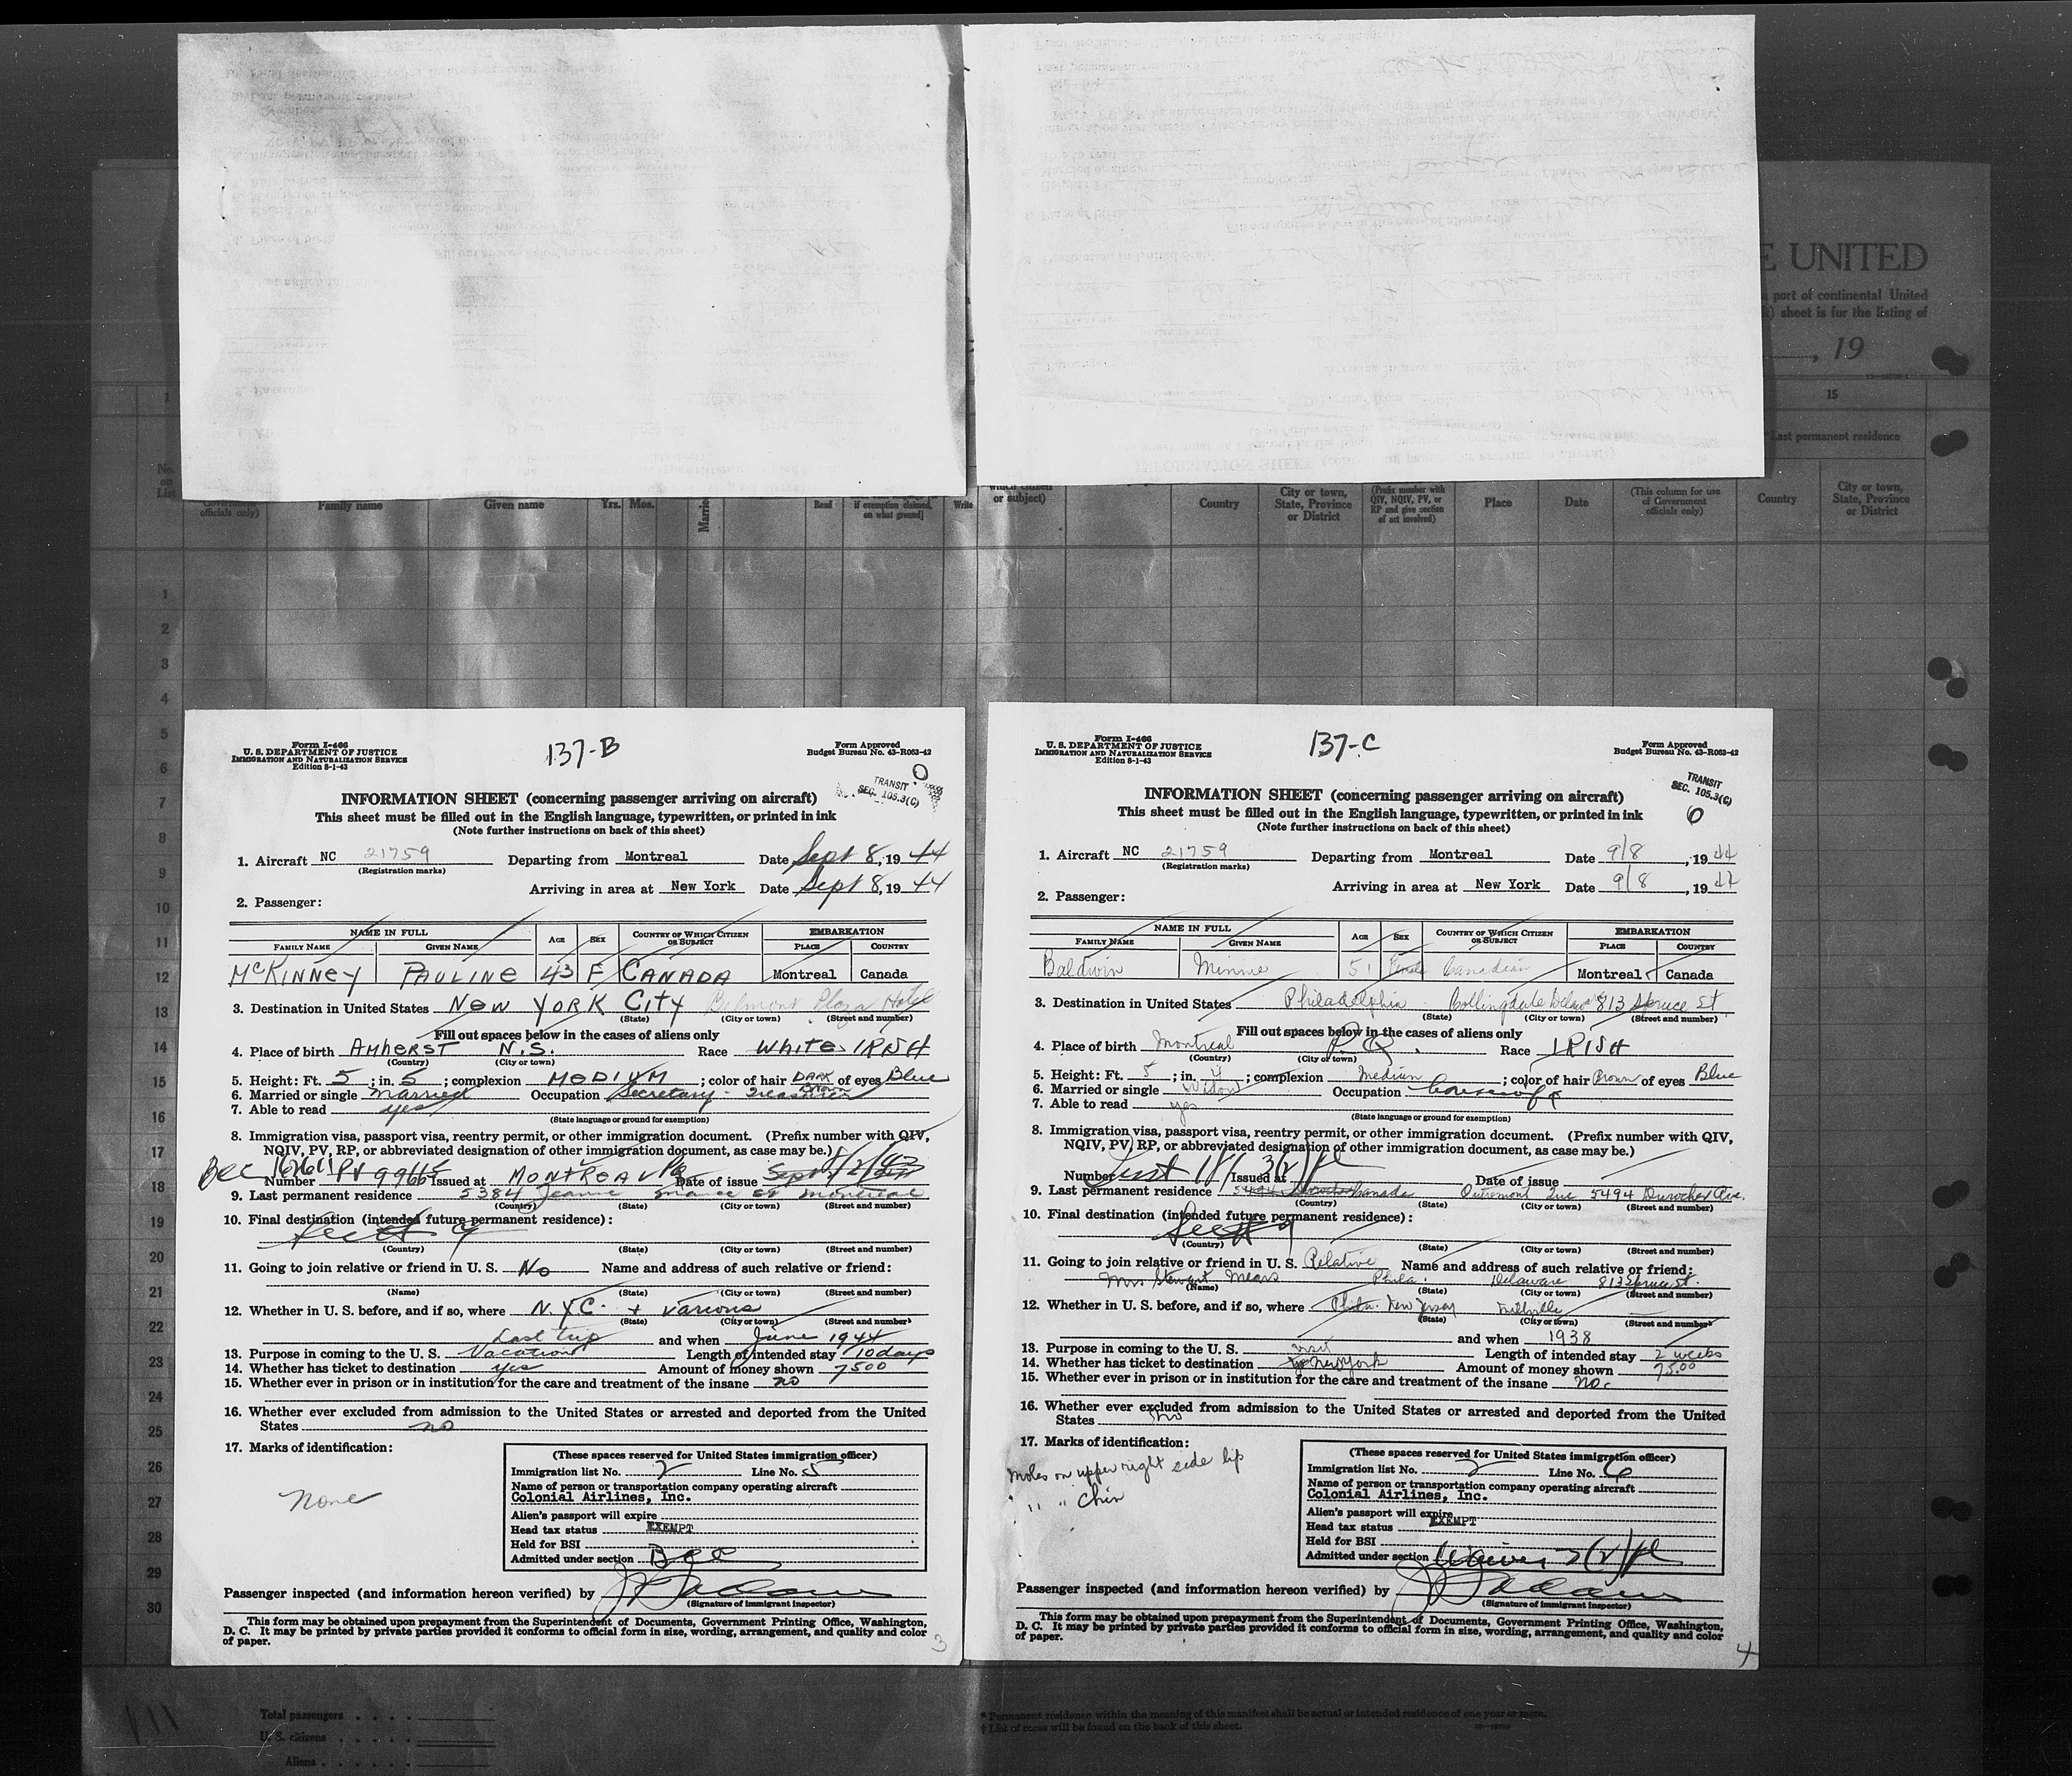 E UNITED
port of continental United
sheet is for the listing of
, 19
15
Last permanent residence
No. on List
officials only)
Family name
Given name
Yrs. Mos.
Read
if exemption claimed, on what ground]
Write
or subject)
Country
City or town, State, Province or District
(Prefix number with QIV, NQIV, PV, or RP and give section of act involved)
Place
Date
(This column for use of Government officials only)
Country
City or town, State, Province or District
1
2
3
4
5
6
7
8
9
10
11
12
13
14
15
16
17
18
19
20
21
22
23
24
25
26
27
28
29
30
Form I-466
U. S. DEPARTMENT OF JUSTICE
IMMIGRATION AND NATURALIZATION SERVICE
Edition 8-1-43
137-B
Form Approved
Budget Bureau No. 43-R063-42
TRANSIT
SEC. 105.3(C)
INFORMATION SHEET (concerning passenger arriving on aircraft)
This sheet must be filled out in the English language, typewritten, or printed in ink
(Note further instructions on back of this sheet)
1. Aircraft NC 21759 Departing from Montreal Date Sept 8, 19 44
(Registration marks)
Arriving in area at New York Date Sept 8, 19 44
2. Passenger:
NAME IN FULL AGE SEX COUNTRY OF WHICH CITIZEN OR SUBJECT EMBARKATION
FAMILY NAME GIVEN NAME PLACE COUNTRY
McKINNEY PAULINE 43 F CANADA Montreal Canada
3. Destination in United States NEW YORK CITY Belmont Plaza Hotel
(State) (City or town) (Street and number)
Fill out spaces below in the cases of aliens only
4. Place of birth AMHERST N.S. Race WHITE IRISH
(Country) (City or town)
5. Height: Ft. 5; in. 5; complexion MEDIUM; color of hair DARK BROWN of eyes Blue
6. Married or single Married Occupation Secretary - Treasurer
7. Able to read yes
(State language or ground for exemption)
8. Immigration visa, passport visa, reentry permit, or other immigration document. (Prefix number with QIV,
NQIV, PV, RP, or abbreviated designation of other immigration document, as case may be.)
Number PV 9965 Issued at MONTREAL PQ Date of issue
9. Last permanent residence 5384 Jeanne Mance St Montreal
(Country) (State) (City or town) (Street and number)
10. Final destination (intended future permanent residence):
(Country) (State) (City or town) (Street and number)
11. Going to join relative or friend in U. S. No Name and address of such relative or friend:
(Name) (State) (City or town) (Street and number)
12. Whether in U. S. before, and if so, where N.Y.C. + various
(State) (City or town) (Street and number)
Last trip and when June 1944
13. Purpose in coming to the U. S. Vacation Length of intended stay 10 days
14. Whether has ticket to destination yes Amount of money shown 7500
15. Whether ever in prison or in institution for the care and treatment of the insane no
16. Whether ever excluded from admission to the United States or arrested and deported from the United
States no
17. Marks of identification:
None
(These spaces reserved for United States immigration officer)
Immigration list No. 2 Line No. 5
Name of person or transportation company operating aircraft
Colonial Airlines, Inc.
Alien's passport will expire
Head tax status EXEMPT
Held for BSI
Admitted under section
Passenger inspected (and information hereon verified) by
(Signature of immigrant inspector)
This form may be obtained upon prepayment from the Superintendent of Documents, Government Printing Office, Washington,
D. C. It may be printed by private parties provided it conforms to official form in size, wording, arrangement, and quality and color
of paper.
3
Form I-466
U. S. DEPARTMENT OF JUSTICE
IMMIGRATION AND NATURALIZATION SERVICE
Edition 8-1-43
137-C
Form Approved
Budget Bureau No. 43-R063-42
TRANSIT
SEC. 105.3(C)
6
INFORMATION SHEET (concerning passenger arriving on aircraft)
This sheet must be filled out in the English language, typewritten, or printed in ink
(Note further instructions on back of this sheet)
1. Aircraft NC 21759 Departing from Montreal Date 9/8, 19 44
(Registration marks)
Arriving in area at New York Date 9/8, 19 44
2. Passenger:
NAME IN FULL AGE SEX COUNTRY OF WHICH CITIZEN OR SUBJECT EMBARKATION
FAMILY NAME GIVEN NAME PLACE COUNTRY
Baldwin Minnie 51 Female Canadian Montreal Canada
3. Destination in United States Philadelphia Collingdale Delaware 813 Spruce St.
(State) (City or town) (Street and number)
Fill out spaces below in the cases of aliens only
4. Place of birth Montreal P.Q. Race IRISH
(Country) (City or town)
5. Height: Ft. 5; in. 4; complexion Medium; color of hair Brown of eyes Blue
6. Married or single Widow Occupation
7. Able to read yes
(State language or ground for exemption)
8. Immigration visa, passport visa, reentry permit, or other immigration document. (Prefix number with QIV,
NQIV, PV, RP, or abbreviated designation of other immigration document, as case may be.)
Number Issued at Date of issue
9. Last permanent residence Canada Outremont Que 5494 Durocher Ave.
(Country) (State) (City or town) (Street and number)
10. Final destination (intended future permanent residence):
(Country) (State) (City or town) (Street and number)
11. Going to join relative or friend in U. S. Relative Name and address of such relative or friend:
Mrs Stewart Mears Phila. Delaware 813 Spruce St.
(Name) (State) (City or town) (Street and number)
12. Whether in U. S. before, and if so, where Phila. New Jersey Millville
(State) (City or town) (Street and number)
and when 1938
13. Purpose in coming to the U. S. visit Length of intended stay 2 weeks
14. Whether has ticket to destination New York Amount of money shown 75.00
15. Whether ever in prison or in institution for the care and treatment of the insane no
16. Whether ever excluded from admission to the United States or arrested and deported from the United
States no
17. Marks of identification:
Moles on upper right side lip
" " " Chin
(These spaces reserved for United States immigration officer)
Immigration list No. 2 Line No. 6
Name of person or transportation company operating aircraft
Colonial Airlines, Inc.
Alien's passport will expire
Head tax status EXEMPT
Held for BSI
Admitted under section
Passenger inspected (and information hereon verified) by
(Signature of immigrant inspector)
This form may be obtained upon prepayment from the Superintendent of Documents, Government Printing Office, Washington,
D. C. It may be printed by private parties provided it conforms to official form in size, wording, arrangement, and quality and color
of paper.
4
Total passengers
U. S. citizens
Aliens
* Permanent residence within the meaning of this manifest shall be actual or intended residence of one year or more.
† List of races will be found on the back of this sheet.